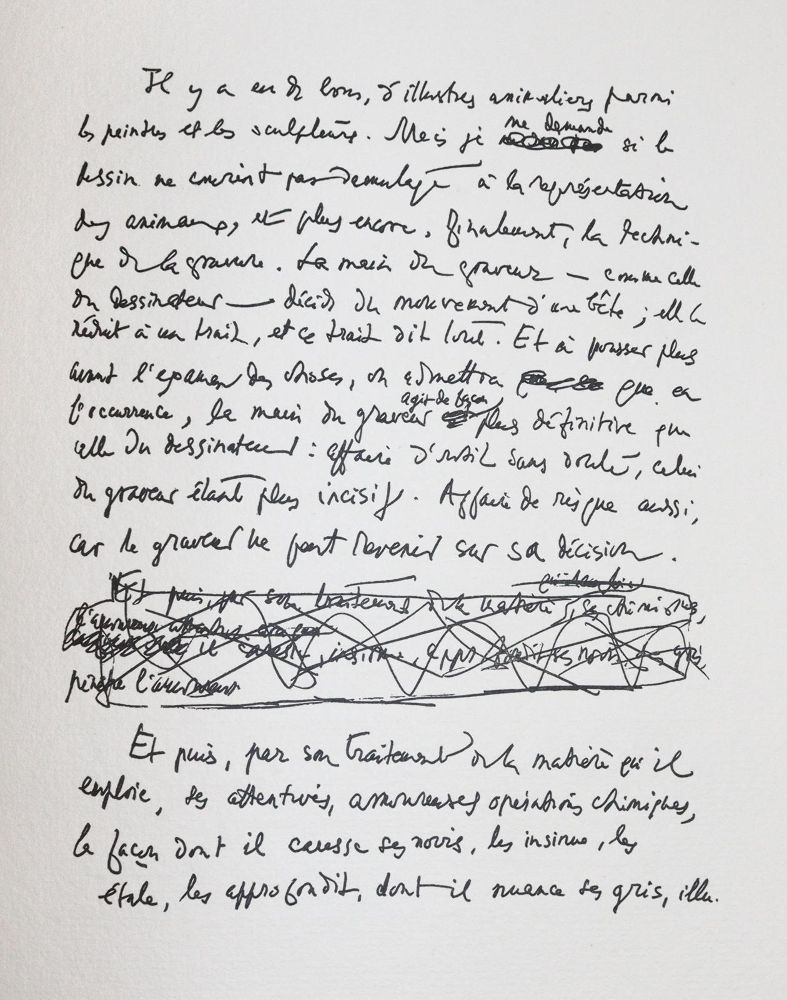 Il y a eu de bons, d'illustres animaliers parmi
les peintres et les sculpteurs. Mais je me demande si le
dessin ne convient pas davantage à la représentation
des animaux, et plus encore, finalement, la techni-
que de la gravure. La main du graveur — comme celle
du dessinateur — décide du mouvement d'une bête ; elle le
réduit à un trait, et ce trait dit tout. Et à pousser plus
avant l'examen des choses, on admettra que en
l'occurrence, la main du graveur agit de façon plus définitive que
celle du dessinateur : affaire d'outil sans doute, celui
du graveur étant plus incisif. Affaire de risque aussi,
car le graveur ne peut revenir sur sa décision.
Et puis, par son traitement de la matière, ses chimismes,
il caresse, insinue, approfondit ses noirs, ses gris,
Et puis, par son traitement de la matière qu'il
emploie, ses attentives, amoureuses opérations chimiques,
la façon dont il caresse ses noirs, les insinue, les
étale, les approfondit, dont il nuance ses gris, illu.